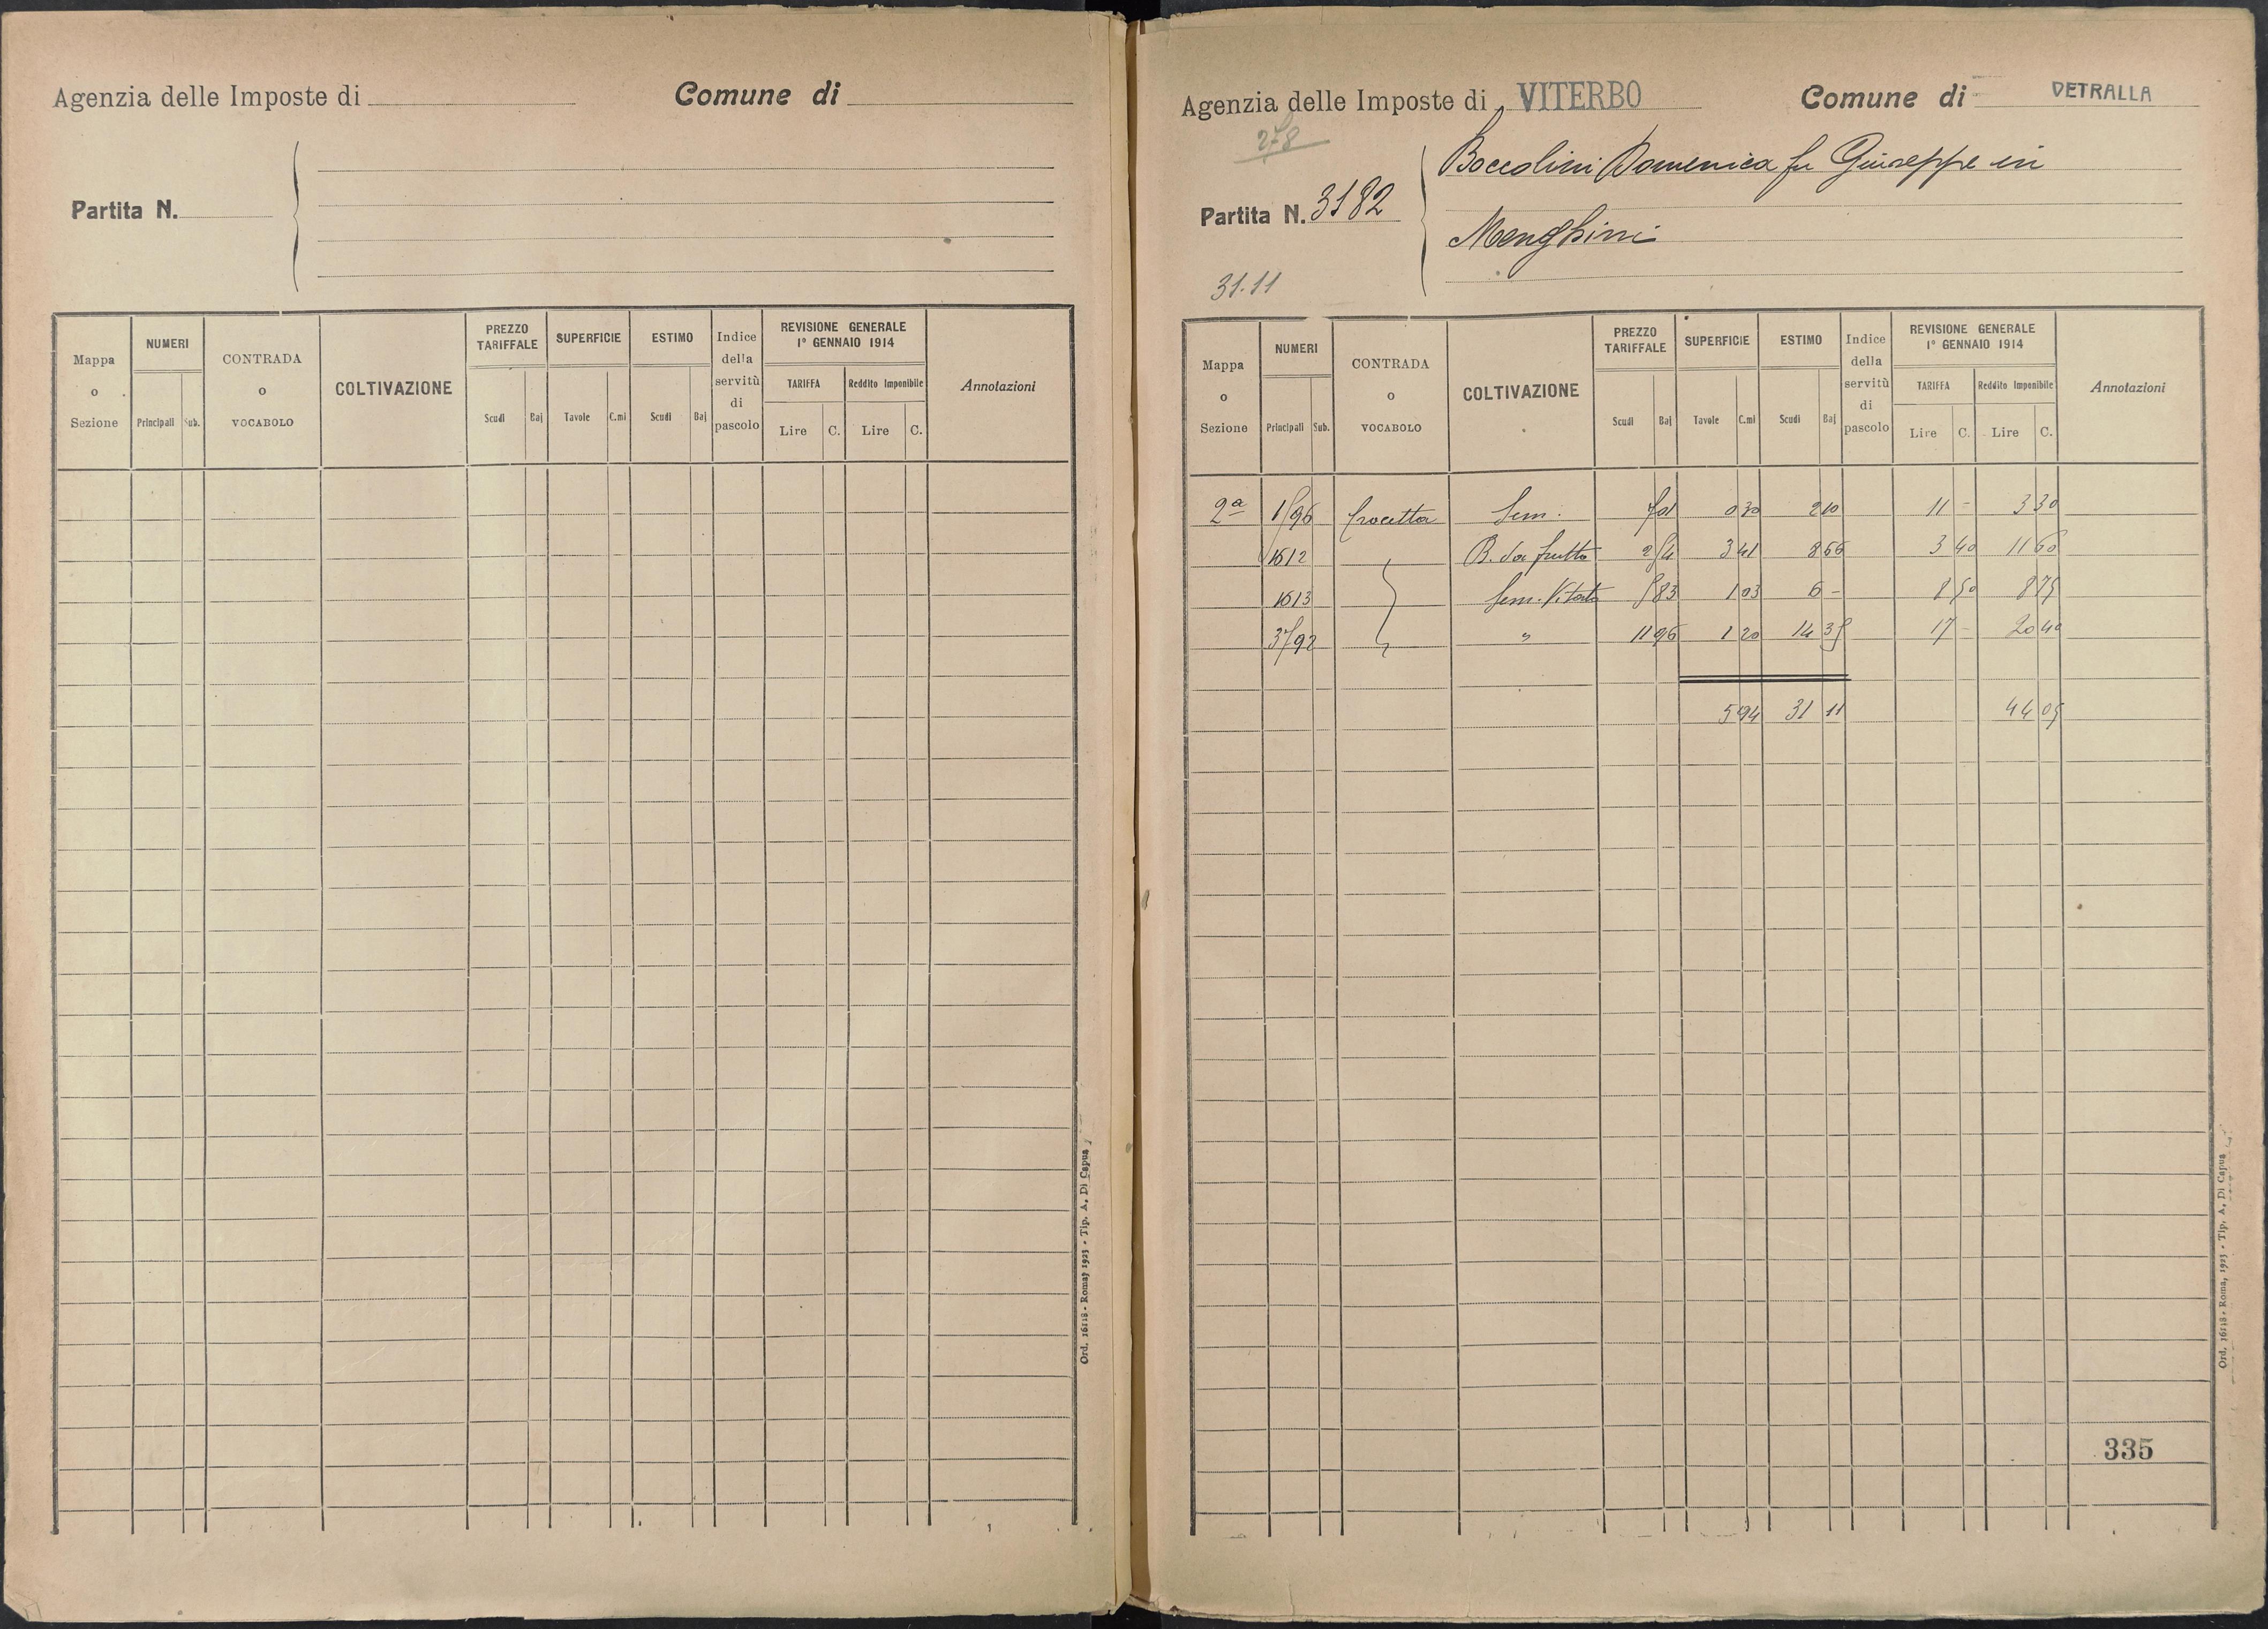 Agenzia delle Imposte di
Comune di
Partita N.
Mappa o Sezione
NUMERI
Principali Sub.
CONTRADA o VOCABOLO
COLTIVAZIONE
PREZZO TARIFFALE
Scudi Baj
SUPERFICIE
Tavole C.mi
ESTIMO
Scudi Baj
Indice della servitù di pascolo
REVISIONE GENERALE 1° GENNAIO 1914
TARIFFA Reddito Imponibile
Lire C. Lire C.
Annotazioni
Ord. 16118 - Roma, 1923 - Tip. A. Di Capua
Agenzia delle Imposte di VITERBO
Comune di VETRALLA
278
Partita N. 3182
Boccolini Domenica fu Giuseppe in
Menghini
31.11
Mappa o Sezione
NUMERI
Principali Sub.
CONTRADA o VOCABOLO
COLTIVAZIONE
PREZZO TARIFFALE
Scudi Baj
SUPERFICIE
Tavole C.mi
ESTIMO
Scudi Baj
Indice della servitù di pascolo
REVISIONE GENERALE 1° GENNAIO 1914
TARIFFA Reddito Imponibile
Lire C. Lire C.
Annotazioni
2ª Crocetta Sem. 7 01 0 30 2 10 11 - 3 30
1612 B. da frutto 2 54 3 41 8 66 3 40 11 60
1613 Sem. Vitato 5 83 1 03 6 - 8 50 8 75
3792 " 11 96 1 20 14 35 17 - 20 40
5 94 31 11 44 05
335
Ord. 16118 - Roma, 1923 - Tip. A. Di Capua